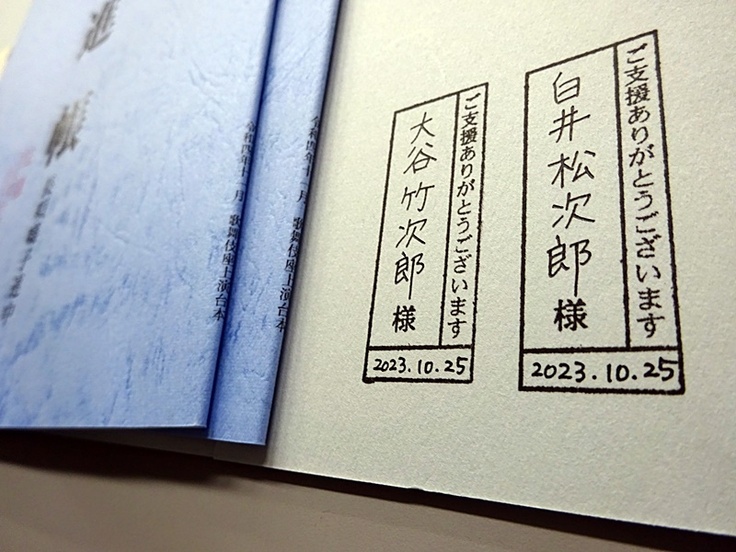 進帳
令和四年十一月 歌舞伎座上演台本
令和四年十一月 歌舞伎座上演台本
ご支援ありがとうございます
臼井松次郎様
2023.10.25
ご支援ありがとうございます
大谷竹次郎様
2023.10.25